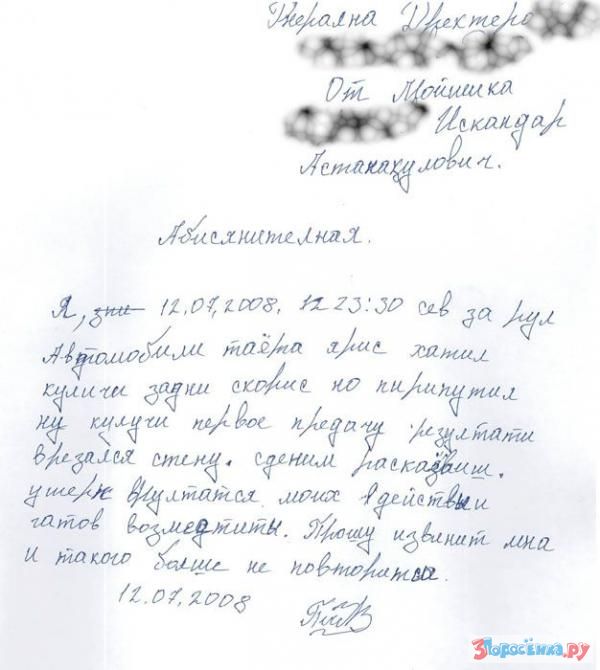 Генералка Джектеро
От Мойшика
Искандар
Астанакулович.
Абиснителная.
Я, 12.07,2008. 12 23:30 сев за рул
Автомобили таёта ярис хатил
куличи задни скорис но пирипутил
ну кулучи первое предачу резултати
врезался стену. сденим расказваиш.
ушерн врултатся моих в действии
гатов возмедтиты. Прошу извинит мна
и такого болше не повторитса.
12.07,2008
Поросёнка.ру